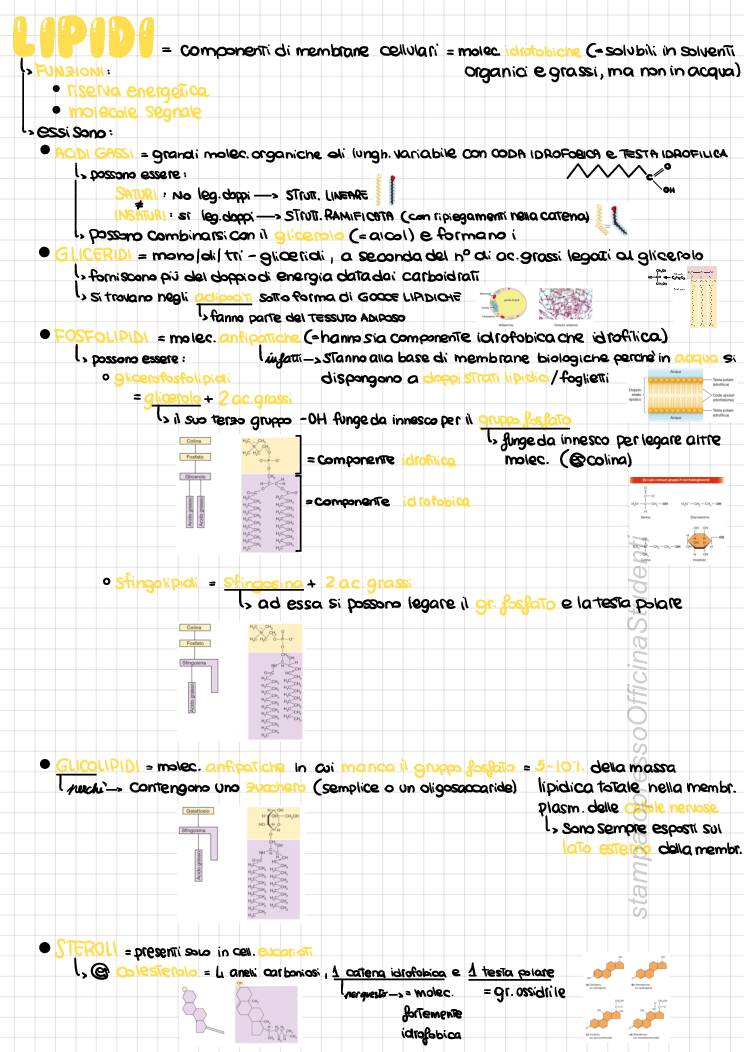 LIPIDI = componenti di membrane cellulari = molec. idrofobiche (= solubili in solventi
organici e grassi, ma non in acqua)
↳ FUNZIONI:
• riserva energetica
• molecole segnale
↳ essi sono:
• ACIDI GASSI = grandi molec. organiche di lungh. variabile con CODA IDROFOBICA e TESTA IDROFILICA
↳ possono essere:
SATURI: No leg. doppi → STRUTT. LINEARE
≠
INSATURI: sì leg. doppi → STRUTT. RAMIFICATA (con ripiegamenti nella catena)
C O OH
↳ possono combinarsi con il glicerolo (= alcol) e formano i
• GLICERIDI = mono/di/tri-gliceridi, a seconda del n° di ac. grassi legati al glicerolo
↳ forniscono più del doppio di energia data dai carboidrati
↳ si trovano negli adipociti sotto forma di GOCCE LIPIDICHE
↳ fanno parte del TESSUTO ADIPOSO
• FOSFOLIPIDI = molec. anfipatiche (= hanno sia componente idrofobica che idrofilica)
↳ possono essere:
↳ infatti → stanno alla base di membrane biologiche perché in acqua si
dispongono a doppi strati lipidici/foglietti
Acqua
Testa polare
(idrofilica)
Doppio
strato
lipidico
Code apolari
(idrofobiche)
Testa polare
(idrofilica)
Acqua
○ glicerofosfolipidi
= glicerolo + 2 ac. grassi
↳ il suo terzo gruppo -OH funge da innesco per il gruppo fosfato
↳ funge da innesco per legare altre
molec. (es colina)
Colina
Fosfato
Glicerolo
Acido grasso
Acido grasso
= componente idrofilica
= componente idrofobica
Serina
Etanolamina
Colina
Inositolo
○ sfingolipidi = sfingosina + 2 ac. grassi
↳ ad essa si possono legare il gr. fosfato e la testa polare
Colina
Fosfato
Sfingosina
Acido grasso
• GLICOLIPIDI = molec. anfipatiche in cui manca il gruppo fosfato = 5-10% della massa
lipidica totale nella membr.
plasm. delle cellule nervose
↳ perché → contengono uno zucchero (semplice o un oligosaccaride)
↳ sono sempre esposti sul
lato esterno della membr.
Galattosio
Sfingosina
Acido grasso
• STEROLI = presenti solo in cell. eucarioti
↳ es colesterolo = 4 anelli carboniosi, 1 catena idrofobica e 1 testa polare
↳ per questo → = molec.
fortemente
idrofobica
= gr. ossidrile
stampa presso OfficinaStudenti